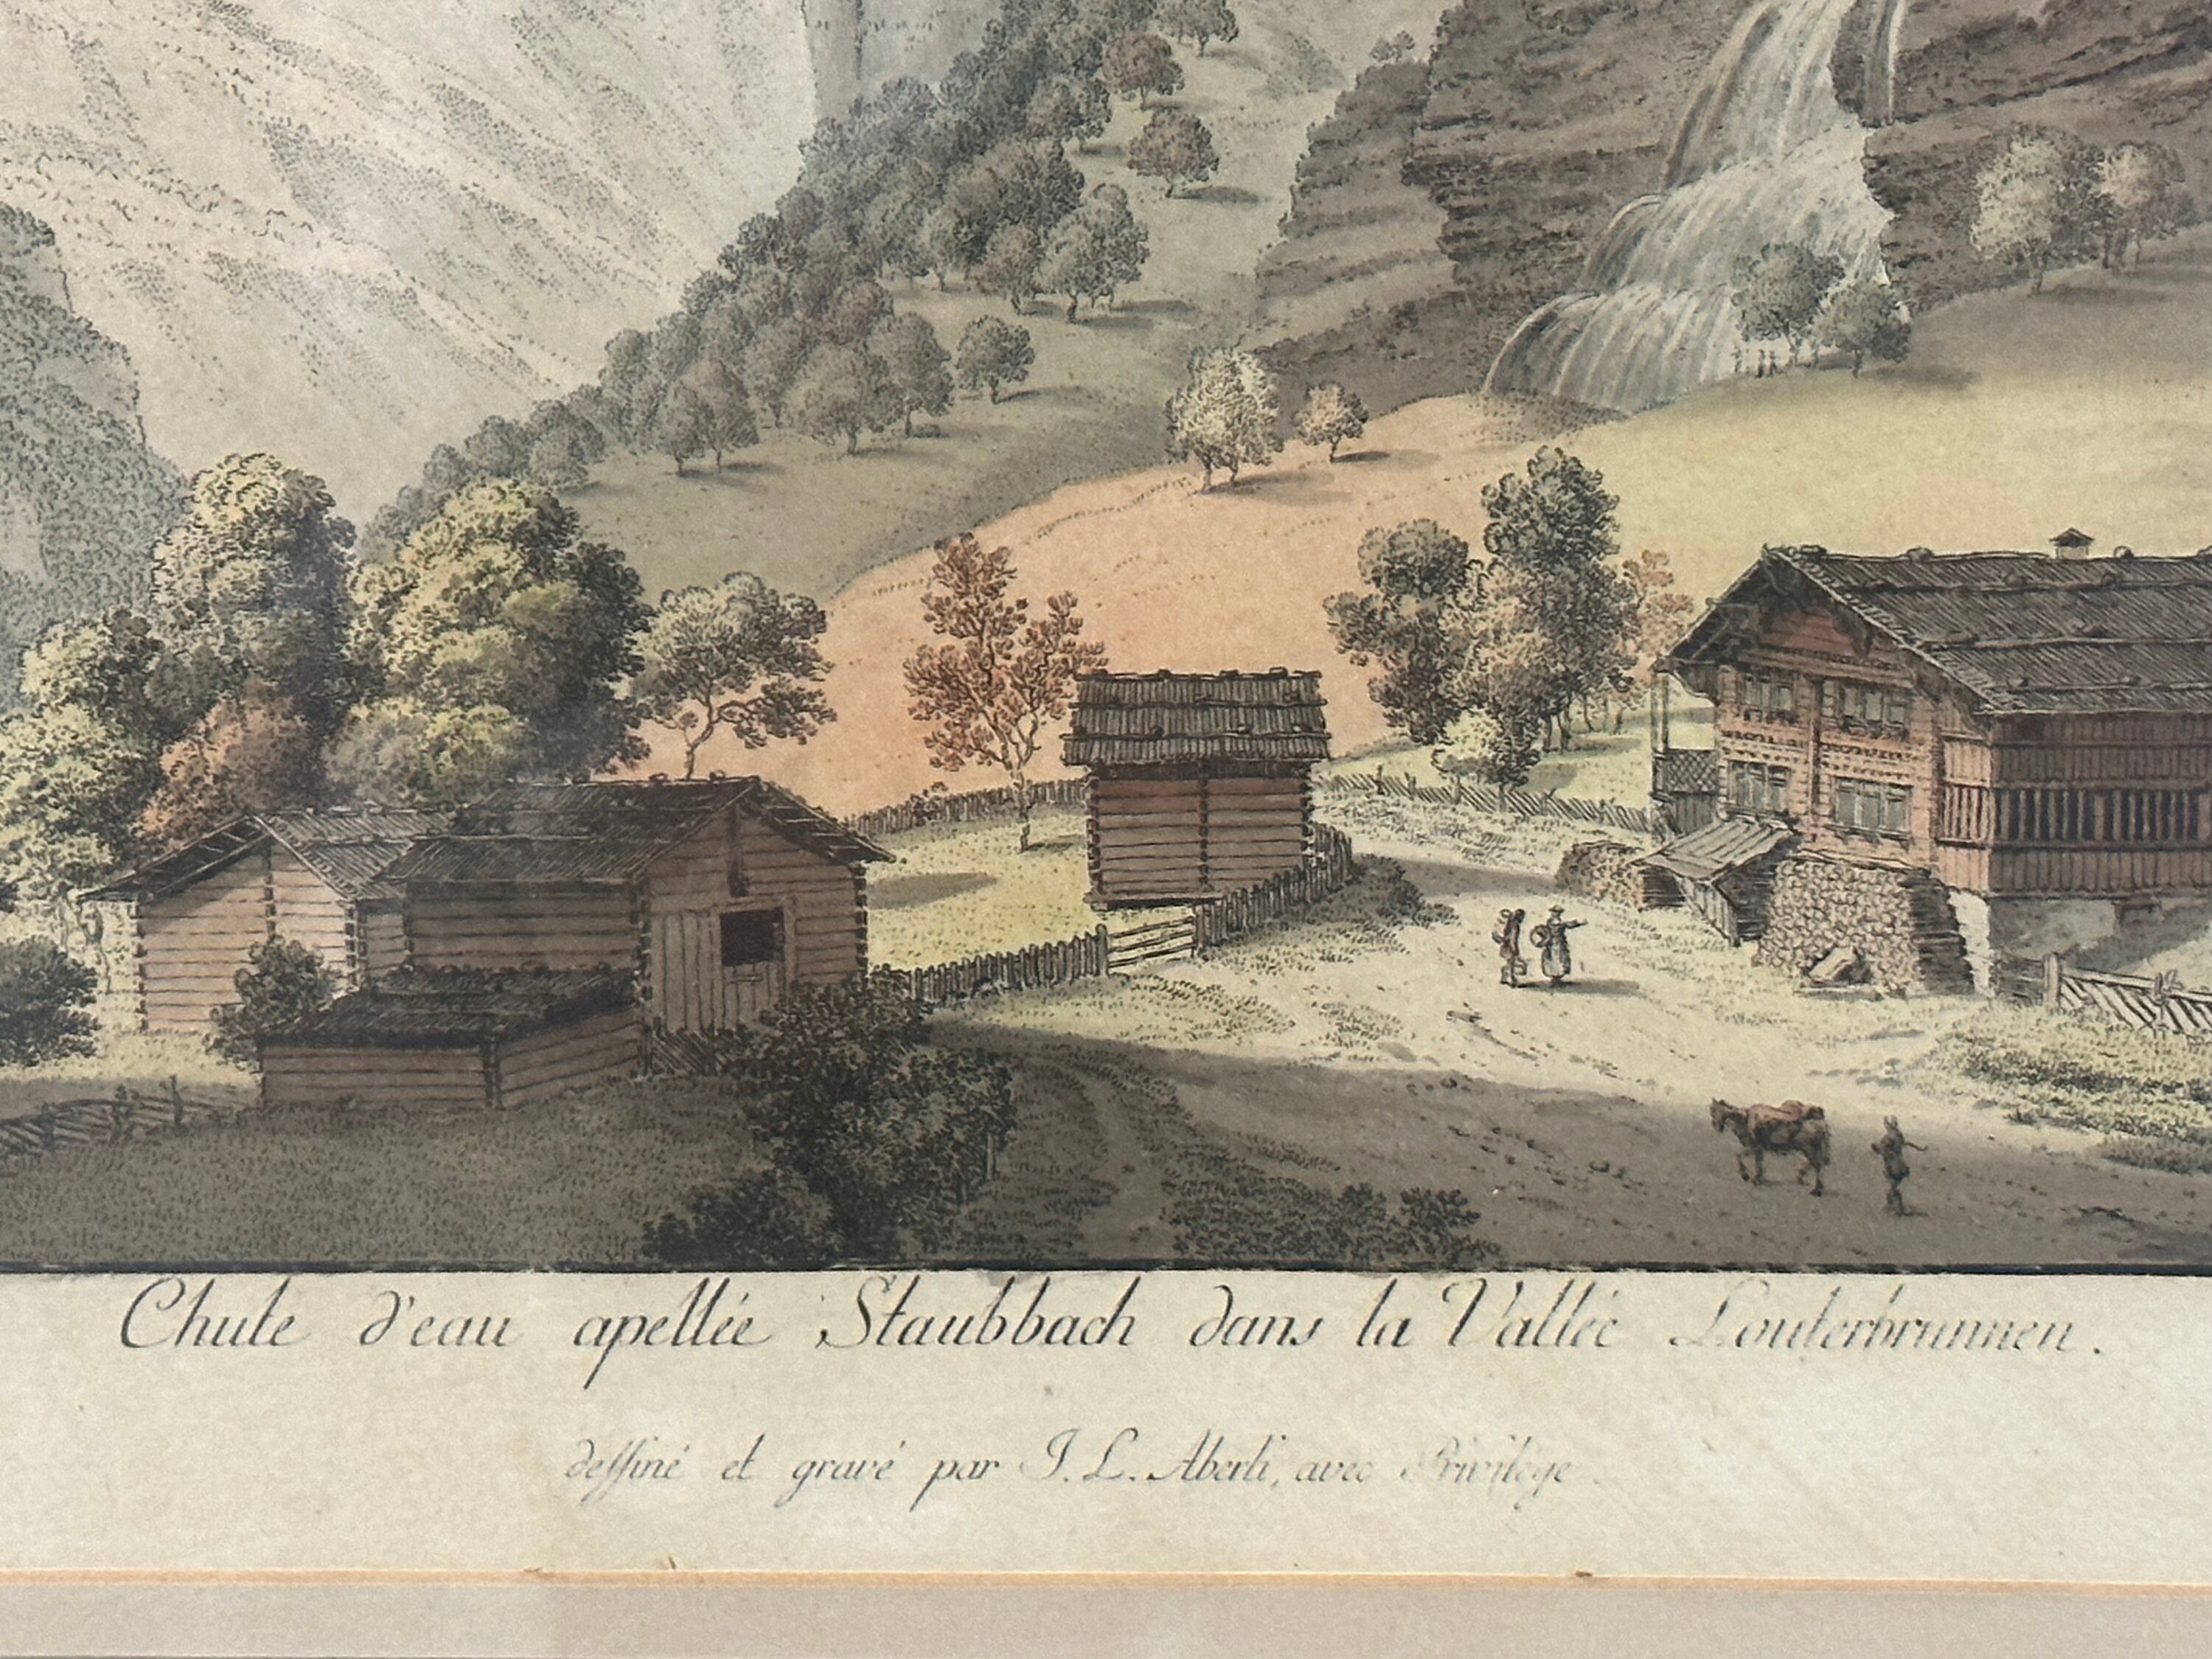 Chute d'eau apellée Staubbach dans la Vallée Louterbrunnen.
dessiné et gravé par J. L. Aberli, avec Privilege.